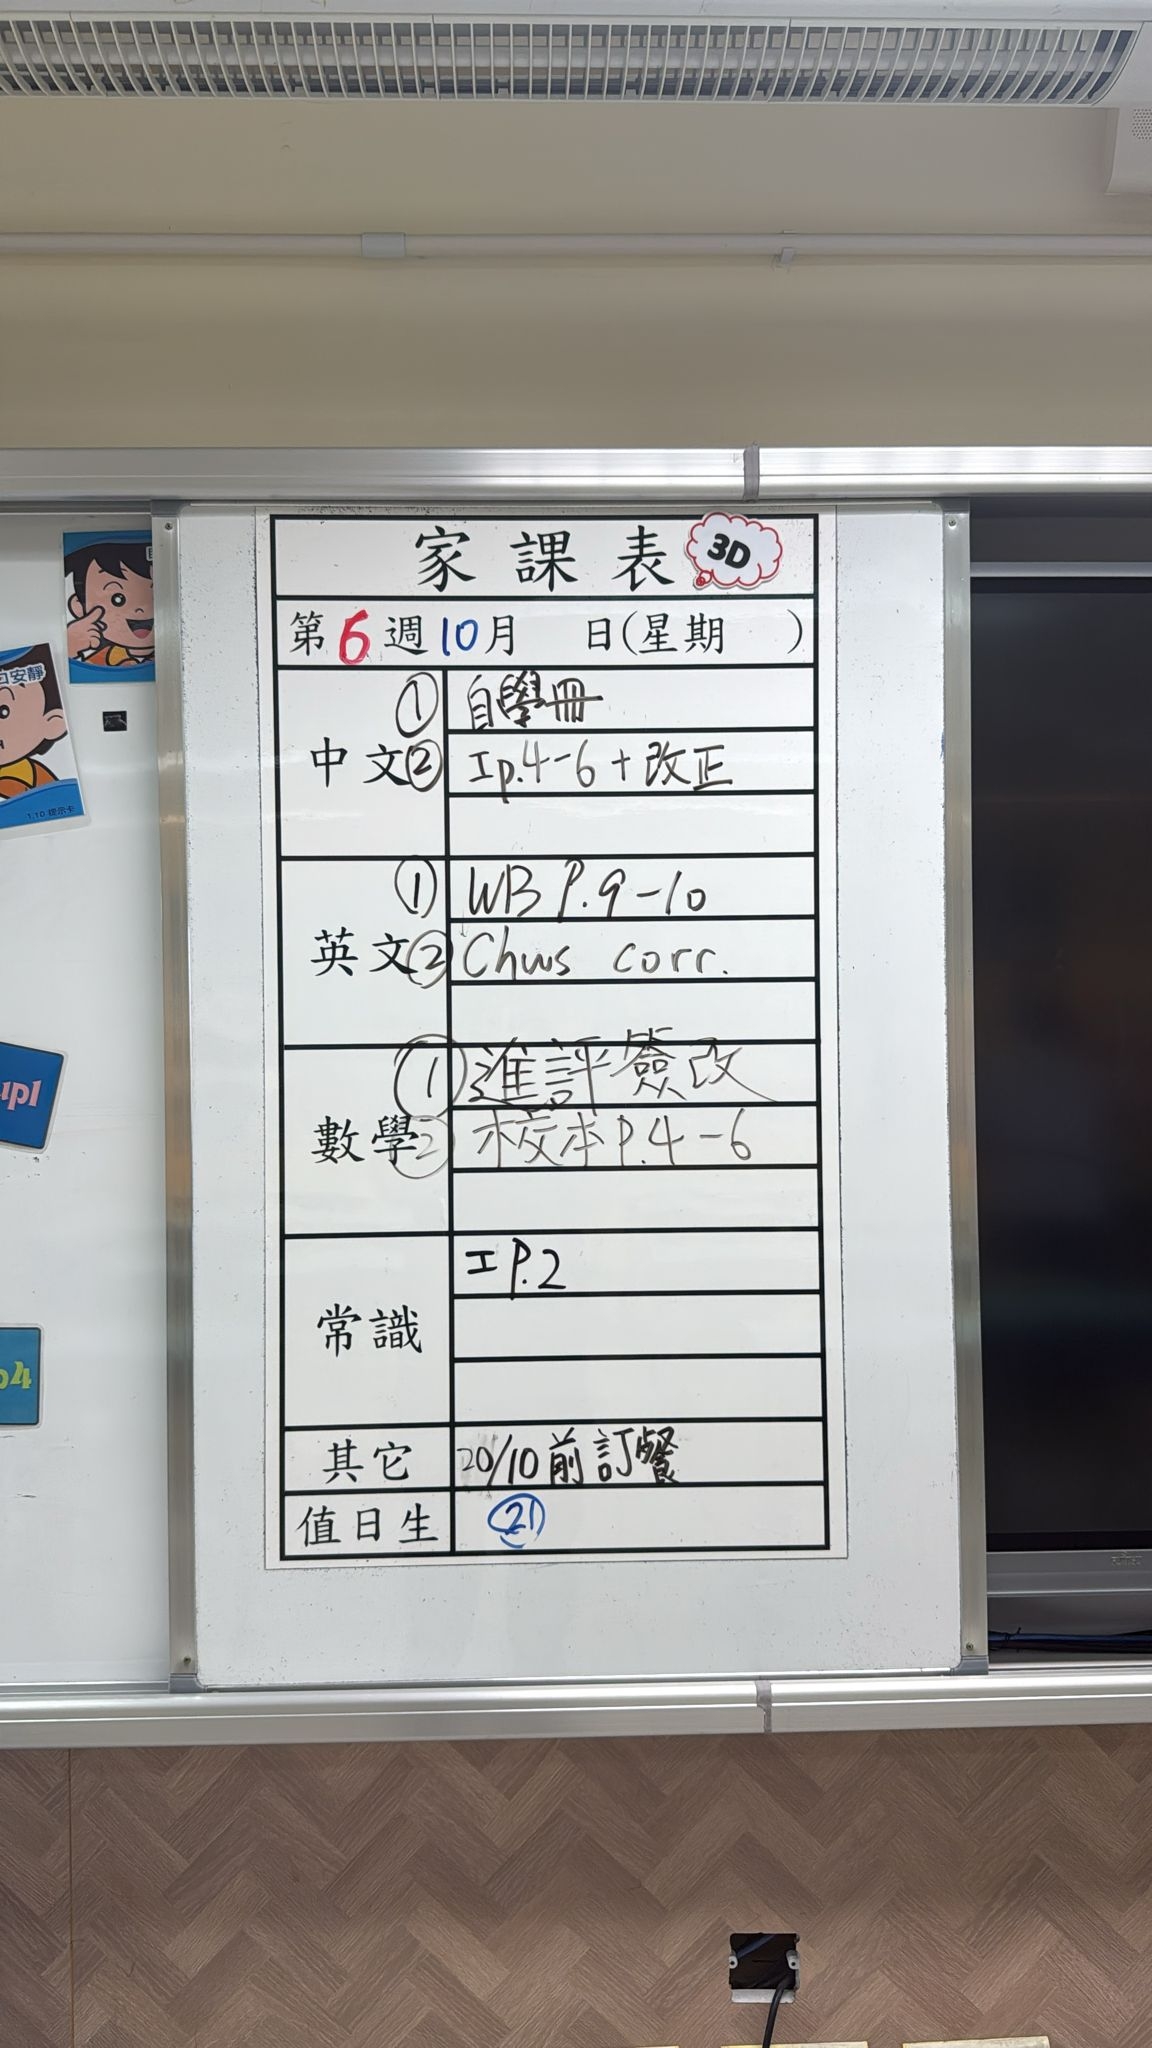 家課表 3D
第6週10月 日(星期 )
中文
① 自學冊
② I p.4-6 + 改正
英文
① WB P.9-10
② Chws corr.
數學
① 進評簽改
② 校本P.4-6
常識
I P.2
其它 20/10前訂餐
值日生 21
安靜
1.10 提示卡